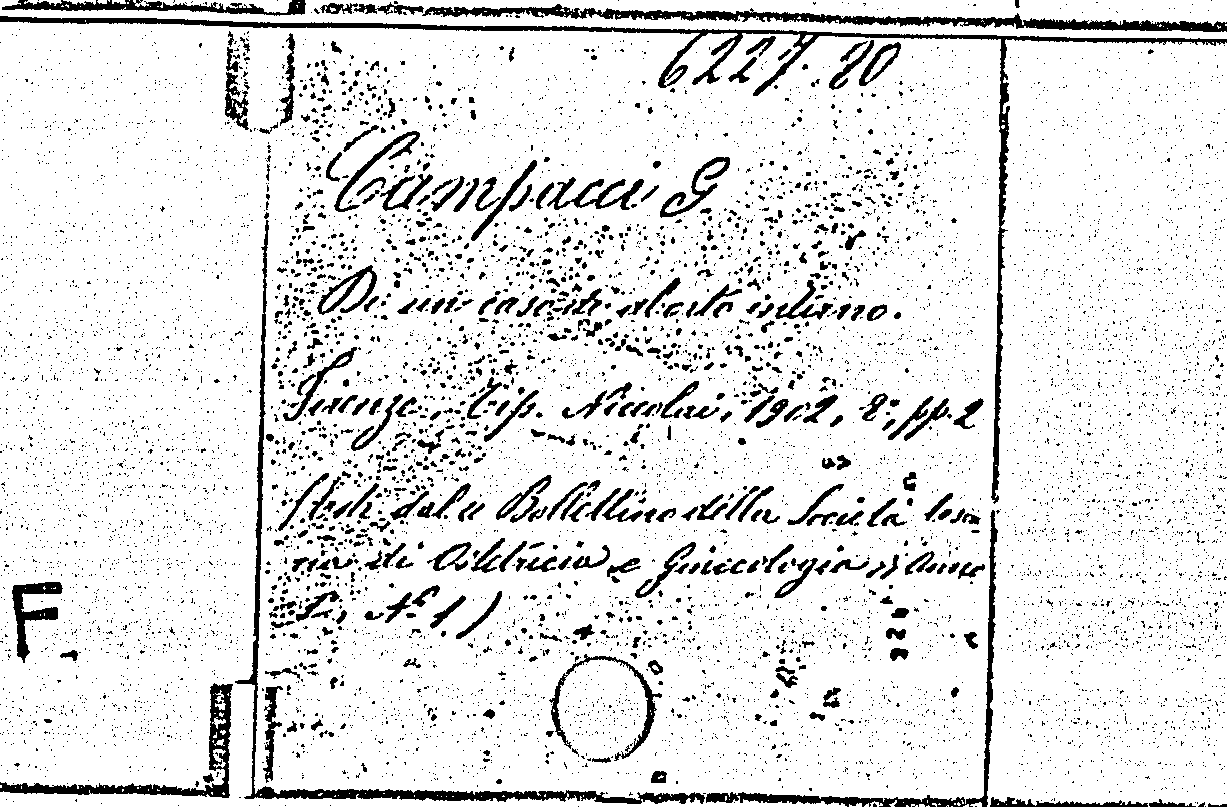 6227.20
Campacci G
Di un caso di aborto interno.
Firenze, Tip. Niccolai, 1902, 8°, pp. 2
(Estr. dal „ Bollettino della Società tosca
na di Ostetricia e Ginecologia „ Anno
I, N° 1.)
F